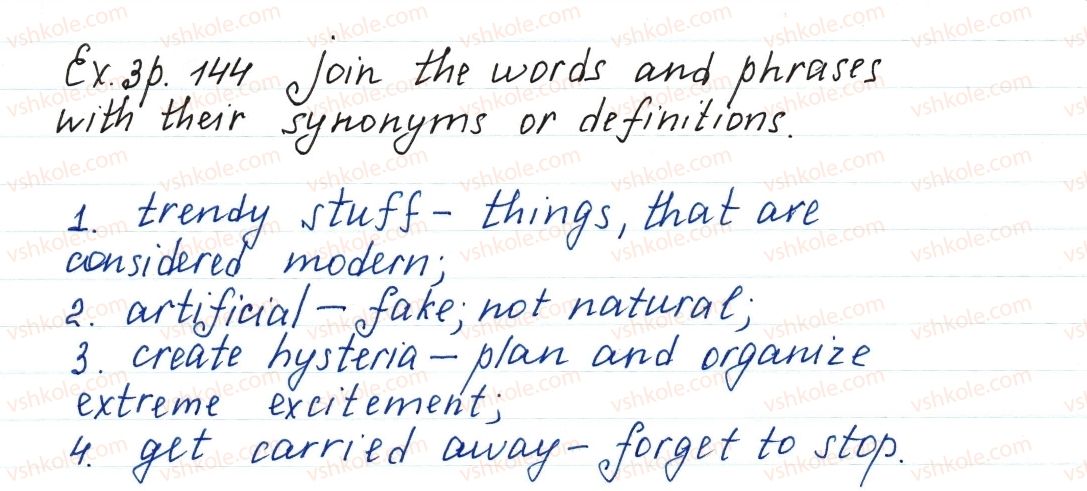 Ex. 3 p. 144 Join the words and phrases
with their synonyms or definitions.
1. trendy stuff – things, that are
considered modern;
2. artificial – fake; not natural;
3. create hysteria – plan and organize
extreme excitement;
4. get carried away – forget to stop.